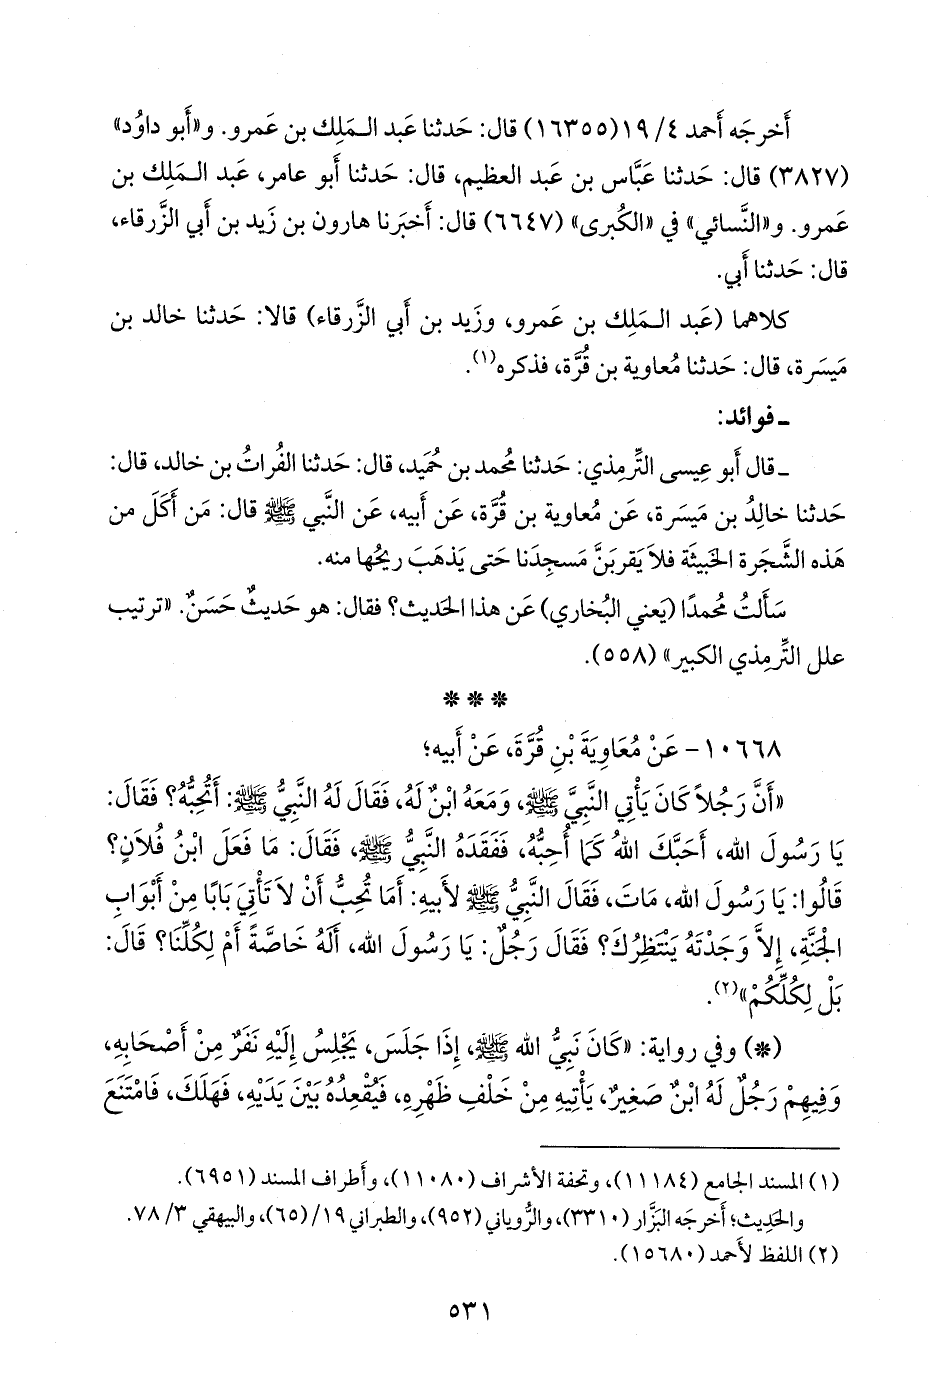 أَخرجَه أَحمد ٤/ ١٩(١٦٣٥٥) قال: حَدثنا عَبد الـمَلِك بن عَمرو. و«أَبو داوُد»
(٣٨٢٧) قال: حَدثنا عَبَّاس بن عَبد العظيم، قال: حَدثنا أَبو عامر، عَبد الـمَلِك بن
عَمرو. و«النَّسائي» في «الكُبرى» (٦٦٤٧) قال: أَخبَرنا هارون بن زَيد بن أَبي الزَّرقاء،
قال: حَدثنا أَبي.
كلاهما (عَبد الـمَلِك بن عَمرو، وزَيد بن أَبي الزَّرقاء) قالا: حَدثنا خالد بن
مَيسَرة، قال: حَدثنا مُعاوية بن قُرَّة، فذكره(١).
ـ فوائد:
ـ قال أَبو عِيسى التِّرمِذي: حَدثنا مُحمد بن حُميد، قال: حَدثنا الفُراتُ بن خالد، قال:
حَدثنا خالِدُ بن مَيسَرة، عَن مُعاوية بن قُرَّة، عَن أَبيه، عَن النَّبي ﷺ قال: مَن أَكَلَ من
هَذه الشَّجَرة الخَبيثَة فلاَ يَقربَنَّ مَسجِدَنا حَتى يَذهَبَ ريحُها منه.
سَأَلتُ مُحمدًا (يَعني البُخاري) عَن هذا الحَديث؟ فقال: هو حَديثٌ حَسَنٌ. «ترتيب
علل التِّرمِذي الكبير» (٥٥٨).
* * *
١٠٦٦٨- عَنْ مُعَاوِيَةَ بْنِ قُرَّةَ، عَنْ أَبيه؛
«أَنَّ رَجُلاً كَانَ يَأْتِي النَّبِيَّ ﷺ، وَمَعَهُ ابْنٌ لَهُ، فَقَالَ لَهُ النَّبِيُّ ﷺ: أَتُحِبُّهُ؟ فَقَالَ:
يَا رَسُولَ الله، أَحَبَّكَ اللهُ كَمَا أُحِبُّهُ، فَفَقَدَهُ النَّبِيُّ ﷺ، فَقَالَ: مَا فَعَلَ ابْنُ فُلَانٍ؟
قَالُوا: يَا رَسُولَ الله، مَاتَ، فَقَالَ النَّبِيُّ ﷺ لأَبِيهِ: أَمَا تُحِبُّ أَنْ لاَ تَأْتِيَ بَابًا مِنْ أَبْوَابِ
الْجَنَّةِ، إِلاَّ وَجَدْتَهُ يَنْتَظِرُكَ؟ فَقَالَ رَجُلٌ: يَا رَسُولَ الله، أَلَهُ خَاصَّةً أَمْ لِكُلِّنَا؟ قَالَ:
بَلْ لِكُلِّكُمْ»(٢).
(*) وفي رواية: «كَانَ نَبِيُّ الله ﷺ، إِذَا جَلَسَ، يَجْلِسُ إِلَيْهِ نَفَرٌ مِنْ أَصْحَابِهِ،
وَفِيهِمْ رَجُلٌ لَهُ ابْنٌ صَغِيرٌ، يَأْتِيهِ مِنْ خَلْفِ ظَهْرِهِ، فَيُقْعِدُهُ بَيْنَ يَدَيْهِ، فَهَلَكَ، فَامْتَنَعَ
(١) المسند الجامع (١١١٨٤)، وتحفة الأشراف (١١٠٨٠)، وأَطراف المسند (٦٩٥١).
والحَدِيث؛ أَخرجَه البَزَّار (٣٣١٠)، والرُّوياني (٩٥٢)، والطبراني ١٩/(٦٥)، والبيهقي ٣/ ٧٨.
(٢) اللفظ لأَحمد (١٥٦٨٠).
٥٣١